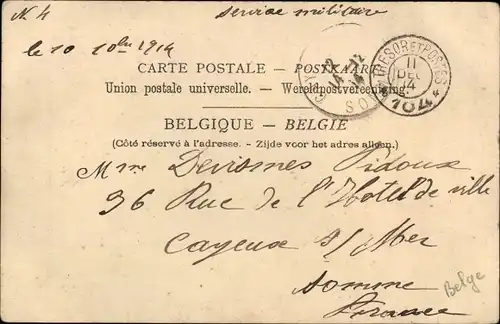 N 4 service militaire
le 10 10bre 1914
CARTE POSTALE - POSTKAART
Union postale universelle. - Wereldpostvereeniging.
TRESOR ET POSTES
11
DEC
14
* 104 *
12
14-12
14
BELGIQUE - BELGIË
(Côté réservé à l'adresse. - Zijde voor het adres alleen.)
Mme Devismes Pidoux
36 Rue de l'Hotel de ville
Cayeux s/ Mer
Somme
France
Belge